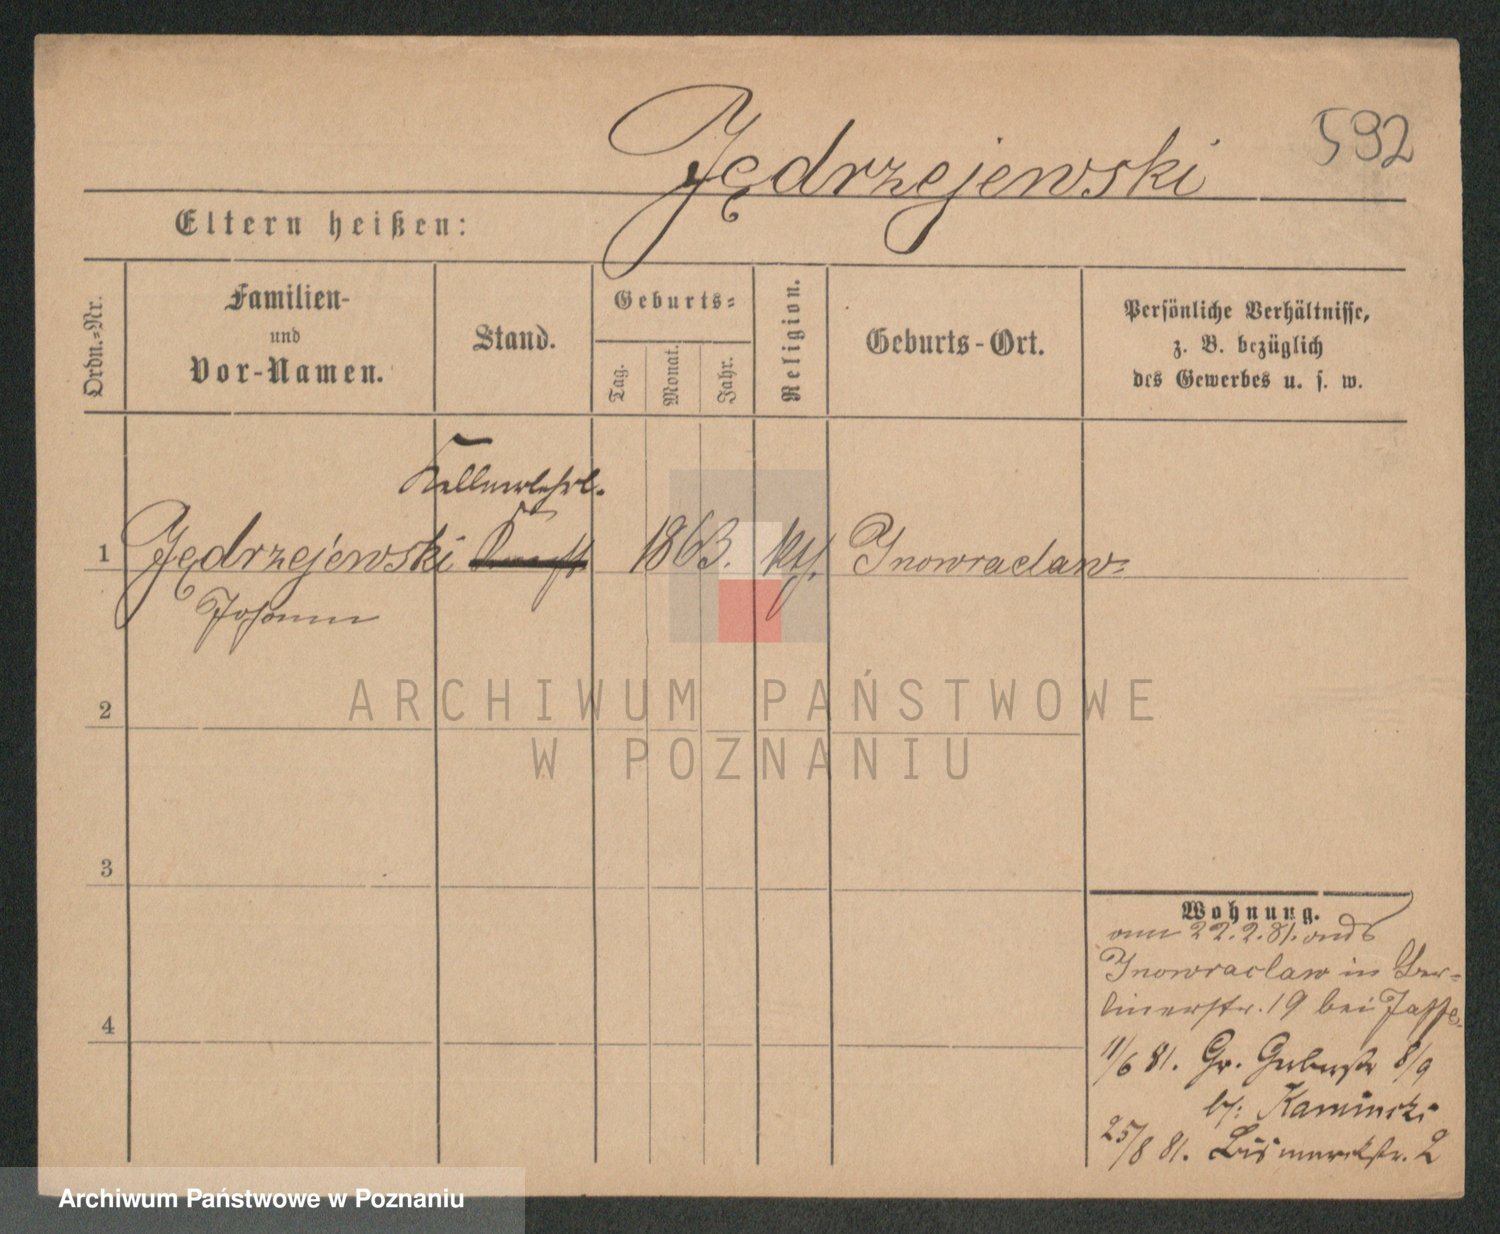 592
Jędrzejewski
Eltern heißen:
Ordn.-Nr.
Familien-
und
Vor-Namen.
Stand.
Geburts-
Tag.
Monat.
Jahr.
Religion.
Geburts-Ort.
Persönliche Verhältnisse,
z. B. bezüglich
des Gewerbes u. s. w.
Kellnerlehrl.
1 Jędrzejewski 1863. kth. Inowraclaw
Johann
2
3
4
Wohnung.
am 22.2.81. aus
Inowraclaw in Ber-
linerstr. 19 bei Jaffe.
11/6 81. Gr. Gerberstr 8/9
b/: Kaminski
25/8 81. Bismarckstr. 2
ARCHIWUM PAŃSTWOWE
W POZNANIU
Archiwum Państwowe w Poznaniu